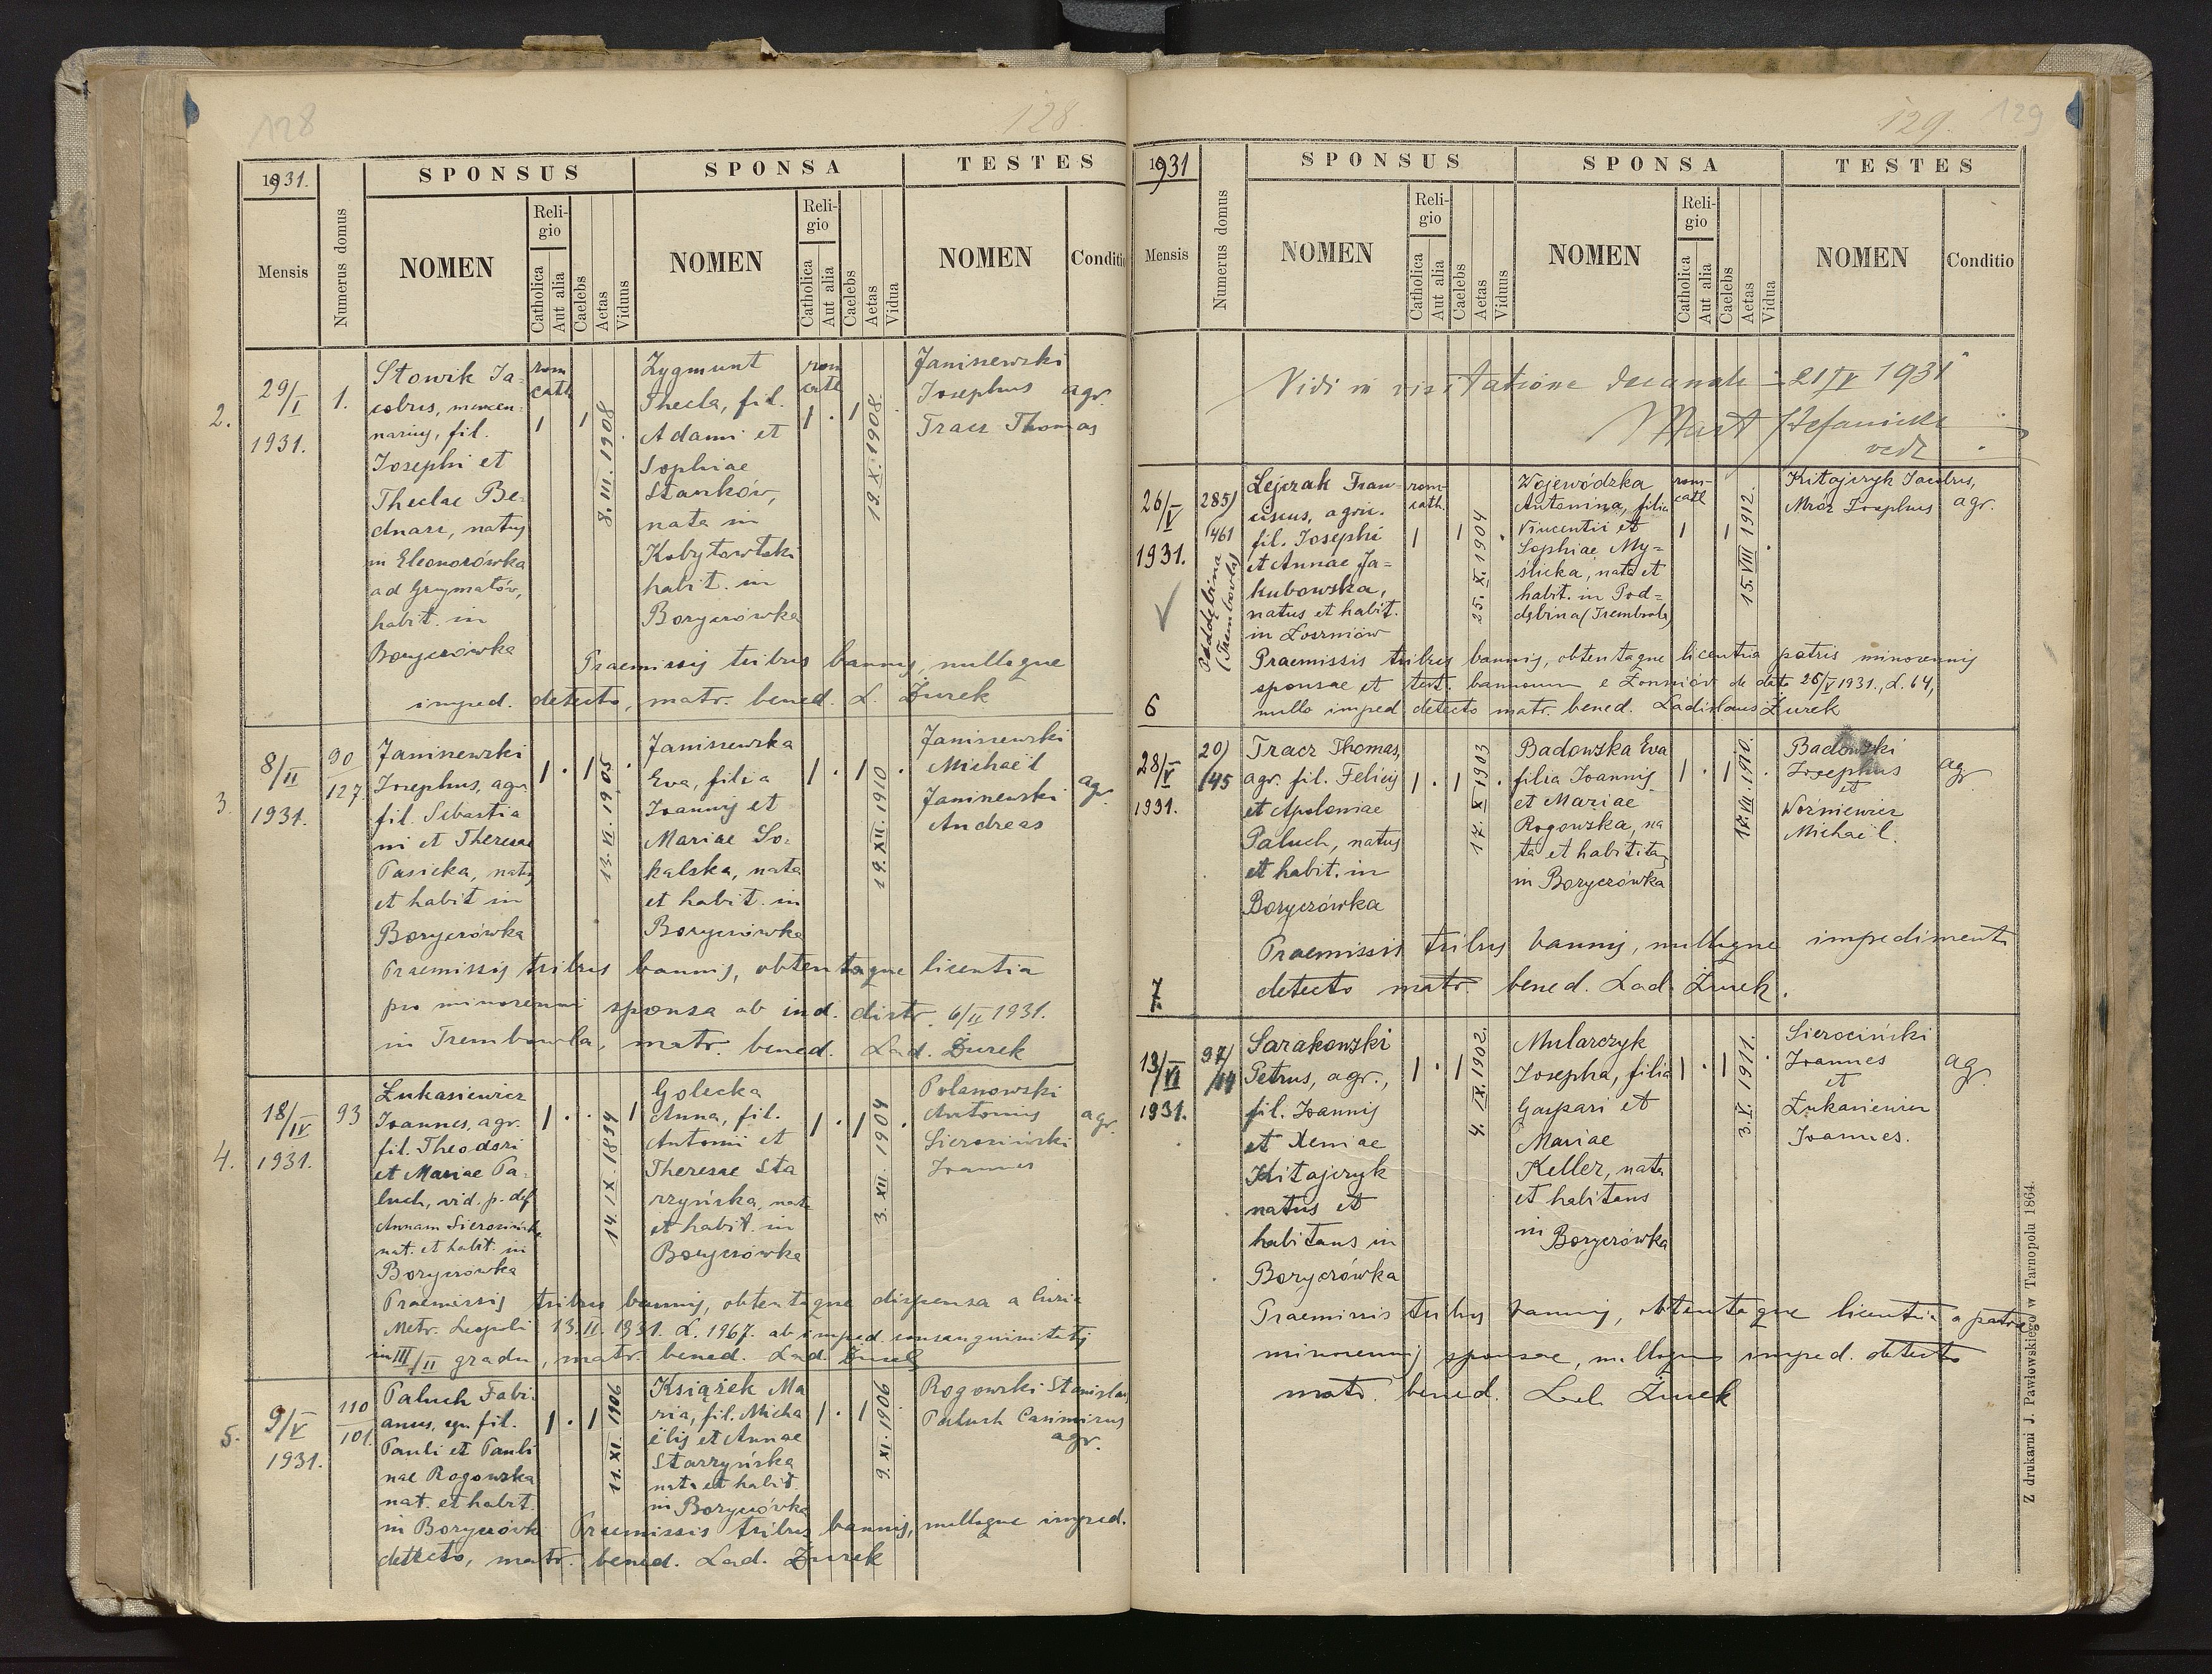 128
128.
1931.
SPONSUS
SPONSA
TESTES
Mensis
Numerus domus
NOMEN
Religio
Catholica
Aut alia
Caelebs
Aetas
Viduus
NOMEN
Religio
Catholica
Aut alia
Caelebs
Aetas
Vidua
NOMEN
Conditio
2.
29/I
1931.
1.
Słowik Ja-
cobus, mercen-
narius, fil.
Josephi et
Theclae Be-
dnarz, natus
in Eleonorówka
ad Grzymałów,
habit. in
Borycrówka
rom
cath
1
1
8. III. 1908
Zygmunt
Thecla, fil.
Adami et
Sophiae
Stanków,
nata in
habit. in
Borycrówka
rom
cath
1 . 1
19. X. 1908
Janiszewski
Josephus agr.
Tracz Thomas
Praemissis tribus bannis, nulloque
imped. detecto, matr. bened. L. Żurek
3.
8/II
1931.
90
127
Janiszewski
Josephus, agr.
fil. Sebastia
ni et Theresae
Pasicka, natus
et habit in
Borycrówka
1 . 1
13. VI. 1905
Janiszewska
Eva, filia
Joannis et
Mariae So-
kalska, nata
et habit. in
Borycrówka
1 . 1 .
19. XII. 1910
Janiszewski
Michaël
Janiszewski
Andreas
agr.
Praemissis tribus bannis, obtentaque licentia
pro minorenni sponsa ab iud. distr. 6/II 1931.
in Trembowla, matr. bened. Lad. Żurek
4.
18/IV
1931.
93
Łukasiewicz
Joannes, agr.
fil. Theodori
et Mariae Pa-
luch, vid. p. def
Annam Sierocińska
nat. et habit. in
Borycrówka
1 . . 1
14. IX. 1894
Golecka
Anna, fil.
Antonii et
Theresae Sta
rzyńska, nata
et habit. in
Borycrówka
1 . 1 .
3. XII. 1904
Polanowski
Antonius
Sierociński
Joannes
agr.
Praemissis tribus bannis, obtentaque dispensa a Curia
Metr. Leopoli 13. II. 1931. L. 1967. ab imped. consanguinitatis
in III/II gradu, matr. bened. Lad. Żurek
5.
9/V
1931.
110
101.
Paluch Fabi-
anus, agr. fil.
Pauli et Pauli
nae Rogowska
nat. et habit.
in Borycrówka
1 . 1
11. XI. 1906
Książek Ma
ria, fil. Micha
ëlis et Annae
Starzyńska
nata et habit.
in Borycrówka
1 . 1
9. XI. 1906
Rogowski Stanislaus
Paluch Casimirus
agr.
Praemissis tribus bannis, nulloque imped.
detecto, matr. bened. Lad. Żurek
129.
129
1931
SPONSUS
SPONSA
TESTES
Mensis
Numerus domus
NOMEN
Religio
Catholica
Aut alia
Caelebs
Aetas
Viduus
NOMEN
Religio
Catholica
Aut alia
Caelebs
Aetas
Vidua
NOMEN
Conditio
Vidi in visitatione decanali 21/IV 1931
6
26/V
1931.
285/
461
Poddębina
(Trembowla)
Lejczak Fran-
ciscus, agric.
fil. Josephi
et Annae Ja-
kubowska,
natus et habit.
in Łoszniów
rom-
cath.
1 1 .
25. X. 1904
Wojewódzka
Antonina, filia
Vincentii et
Sophiae My-
ślicka, nata et
habit. in Pod-
dębina (Trembowla)
rom-
cath
1 1 .
15. VIII 1912.
Kitajczyk Jacobus,
Mróz Josephus agr.
Praemissis tribus bannis, obtentaque licentia patris minorennis
sponsae et test. bannorum e Łoszniów de dato 26/V 1931., L. 64,
nullo imped detecto matr. bened. Ladislaus Żurek
7.
28/V
1931.
20/
145
Tracz Thomas,
agr. fil. Felicis
et Apoloniae
Paluch, natus
et habit. in
Borycrówka
1 . 1 .
17. X 1903
Badowska Eva
filia Joannis
et Mariae
Rogowska, na
ta et habitans
in Borycrówka
1 . 1 .
17. III. 1910.
Badowski
Josephus
et
Woźniewicz
Michaël.
agr
Praemissis tribus bannis, nulloque impedimento
detecto matr. bened. Lad. Żurek.
13/VI
1931.
97/
Sarakowski
Petrus, agr.,
fil. Joannis
et Xeniae
Kitajczyk
natus et
habitans in
Borycrówka
1 . 1
4. IX. 1902.
Mularczyk
Josepha, filia
Gaspari et
Mariae
Keller, nata
et habitans
in Borycrówka
1 . 1
3. V. 1911.
Sierociński
Joannes
et
Łukasiewicz
Joannes.
agr.
Praemissis tribus bannis, obtentaque licentia a patre
minorennis sponsae, nulloque imped. detecto
matr. bened. Lad. Żurek
Z drukarni J. Pawłowskiego w Tarnopolu 1864.